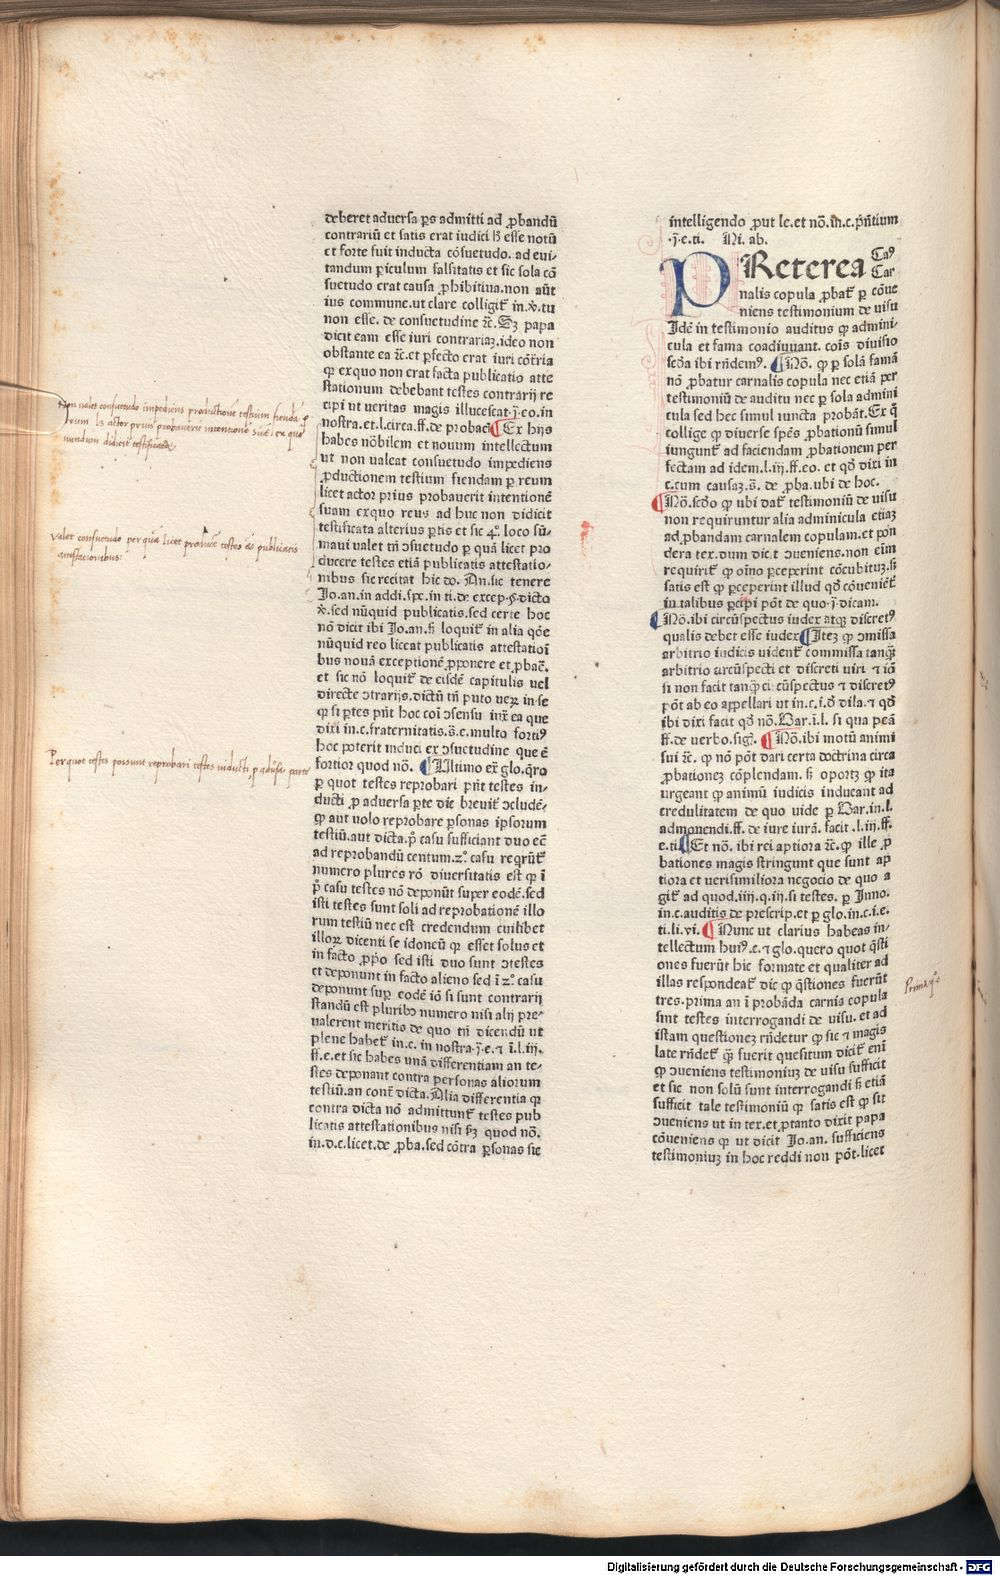 deberet aduersa ꝑs admitti ad ꝓbandū
contrariū et satis erat iudici hͦ esse notū
et forte fuit inducta cōsuetudo. ad eui-
tandum ꝑiculum falsitatis et sic sola cō
suetudo erat causa ꝓhibitiua. non aūt
ius commune. ut clare colligit᷑ in. ꝟ. tu
non esse. de consuetudine ⁊c. Sꝫ papa
dicit eam esse iuri contrariaꝫ. ideo non
obstante ea ⁊c. et ꝑfecto erat iuri cōtria
ꝙ exquo non erat facta publicatio atte
stationum debebant testes contrarij re
cipi ut ueritas magis illucescat. j̄. eo. in
nostra. et. l. circa. ff. de probac̄ ¶ Ex hijs
habes nōbilem et nouum intellectum
ut non ualeat consuetudo impediens
ꝓductionem testium fiendam ꝑ reum
licet actor prius probauerit intentionē
suam exquo reus ad huc non didicit
testificata alterius ꝑtis et sic 4͛. loco sū-
maui ualet tn̄ ɔsuetudo ꝑ quā licet pro
ducere testes etiā publicatis attestatio-
nibus sic recitat hic do. An. sic tenere
Jo. an. in addi. spe. in ti. de excep. §. dicto
ꝟ. sed nūquid publicatis. sed certe hoc
nō dicit ibi Jo. an. ſꝫ loquit᷑ in alia qōe
nūquid reo liceat publicatis attestatiōi
bus nouā exceptionē ꝓponere et ꝓbac̄.
et sic nō loquit᷑ de eisdē capitulis uel
directe ɔtrarijs. dictū tn̄ puto ueꝝ in se
ꝙ si ꝑtes pn̄t hoc coī ɔsensu iux̄ ea que
dixi in c. fraternitatis. s̄. e. multo fortiꝰ
hoc poterit induci ex ɔsuetudine que ē
fortior quod nō. ¶ Ultimo ex̄ glo. q̄ro
ꝑ quot testes reprobari pn̄t testes in-
ducti ꝑ aduersa ꝑte dic breuit᷑ ɔcludē.
ꝙ aut uolo reprobare ꝑsonas ipsorum
testiū. aut dicta. pͦ casu sufficiant duo ec̄
ad reprobandū centum. zͦ. casu reqrūt᷑
numero plures rō diuersitatis est ꝙ ī
pͦ casu testes nō deponūt super eodē. sed
isti testes sunt soli ad reprobationē illo
rum testiū nec est credendum cuilibet
illoꝝ dicenti se idoneū ꝙ esset solus et
in facto ꝓpͦo sed isti duo sunt ɔtestes
et deponunt in facto alieno sed ī zͦ. casu
deponunt suꝑ eodē iō si sunt contrarij
standū est pluribꝫ numero nisi alij pre-
ualerent meritis de quo tn̄ dicendū ut
plene habet᷑ in. c. in nostra. j̄. e. ⁊ ī. l. iij.
ff. e. et sic habes unā differentiam an te-
stes deponant contra personas aliorum
testiū. an cont̄ dicta. Alia differentia ꝙ
contra dicta nō admittunt᷑ testes pub
licatis attestationibus nisi ẜꝫ quod nō.
in. d. c. licet. de ꝓba. sed cōtra ꝑsonas sic
intelligendo ꝓut le. et nō. in. c. pn̄tium
. j̄. e. ti. Ni. ab.
PReterea Caꝰ
Car
nalis copula ꝓbat᷑ ꝑ cōue
niens testimonium de uisu
Idē in testimonio auditus ꝙ admini-
cula et fama coadiuuant. cōis diuisio
sedā ibi rn̄demꝰ. ¶ Nō. ꝙ ꝑ solā famā
nō ꝓbatur carnalis copula nec etiā per
testimoniū de auditu nec ꝑ sola admini
cula sed hec simul iuncta probāt. Ex ꝙ
collige ꝙ diuerse spēs ꝓbationū simul
iungunt᷑ ad faciendam ꝓbationem per
fectam ad idem. l. iij. ff. eo. et qd̄ dixi in
c. cum causaꝫ. s̄. de ꝓba. ubi de hoc.
¶ Nō. scd̄o ꝙ ubi dat᷑ testimoniū de uisu
non requiruntur alia adminicula etiaꝫ
ad ꝓbandam carnalem copulam. et pon
dera tex. dum dicit ɔueniens. non eīm
requirit᷑ ꝙ oīno ꝑceperint cōcubituꝫ. ſꝫ
satis est ꝙ ꝑceperint illud qd̄ cōueniēt᷑
in talibus ꝑcipi pōt de quo. j̄. dicam.
¶ Nō. ibi circūspectus iudex atqꝫ discretꝰ
qualis debet esse iudex ¶ Iteꝫ ꝙ ɔmissa
arbitrio iudicis uident᷑ commissa tanqͣꝫ
arbitrio circūspecti et discreti uiri ⁊ iō
si non facit tanqͣꝫ circūspectus ⁊ discretꝰ
pōt ab eo appellari ut in. c. i. d̄ dila. ⁊ qd̄
ibi dixi facit qd̄ nō. Bar. ī. l. si qua peā
ff. de uerbo. sigꝫ. ¶ Nō. ibi motū animi
sui ⁊c. ꝙ nō pōt dari certa doctrina circa
ꝓbationeꝫ cōplendam. ſꝫ oportꝫ ꝙ ita
urgeant ꝙ animū iudicis inducant ad
credulitatem de quo uide ꝑ Bar. in. l.
admonendi. ff. de iure iurā. facit. l. iij. ff.
e. ti. ¶ Et nō. ibi rei aptiora ⁊c. ꝙ ille ꝓ
bationes magis stringunt que sunt ap
tiora et uerisimiliora negocio de quo a
git᷑ ad quod. iiij. q. iij. si testes. ꝑ Inno.
in. c. auditis de prescrip. et ꝑ glo. in. c. i. e.
ti. li. vi. ¶ Nunc ut clarius habeas in-
tellectum huiꝰ. c. ⁊ glo. quero quot q̄sti
ones fuerūt hic formate et qualiter ad
illas respondeat᷑ dic ꝙ q̄stiones fuerūt
tres. prima an ī probāda carnis copula
sint testes interrogandi de uisu. et ad
istam questioneꝫ rn̄detur ꝙ sic ⁊ magis
late rn̄det᷑ qͣꝫ fuerit quesitum dicit᷑ enī
ꝙ ɔueniens testimoniuꝫ de uisu sufficit
et sic non solū sunt interrogandi ſꝫ etiā
sufficit tale testimoniū ꝙ satis est ꝙ sit
ɔueniens ut in tex. et ꝓtanto dixit papa
cōueniens ꝙ ut dicit Jo. an. sufficiens
testimoniuꝫ in hoc reddi non pōt. licet
Non valet consuetudo impediens productionē testium fiendā ꝑ
reum lꝫ actor prius probauerit intentionē suā. ex quo
nundum didicit testificata
Valet consuetudo per quā licet producere testes etiā publicatis
attestacionibus:
Per quot testes possunt reprobari testes inducti ꝑ aduersā partē
Prima qͦ
Digitalisierung gefördert durch die Deutsche Forschungsgemeinschaft - DFG